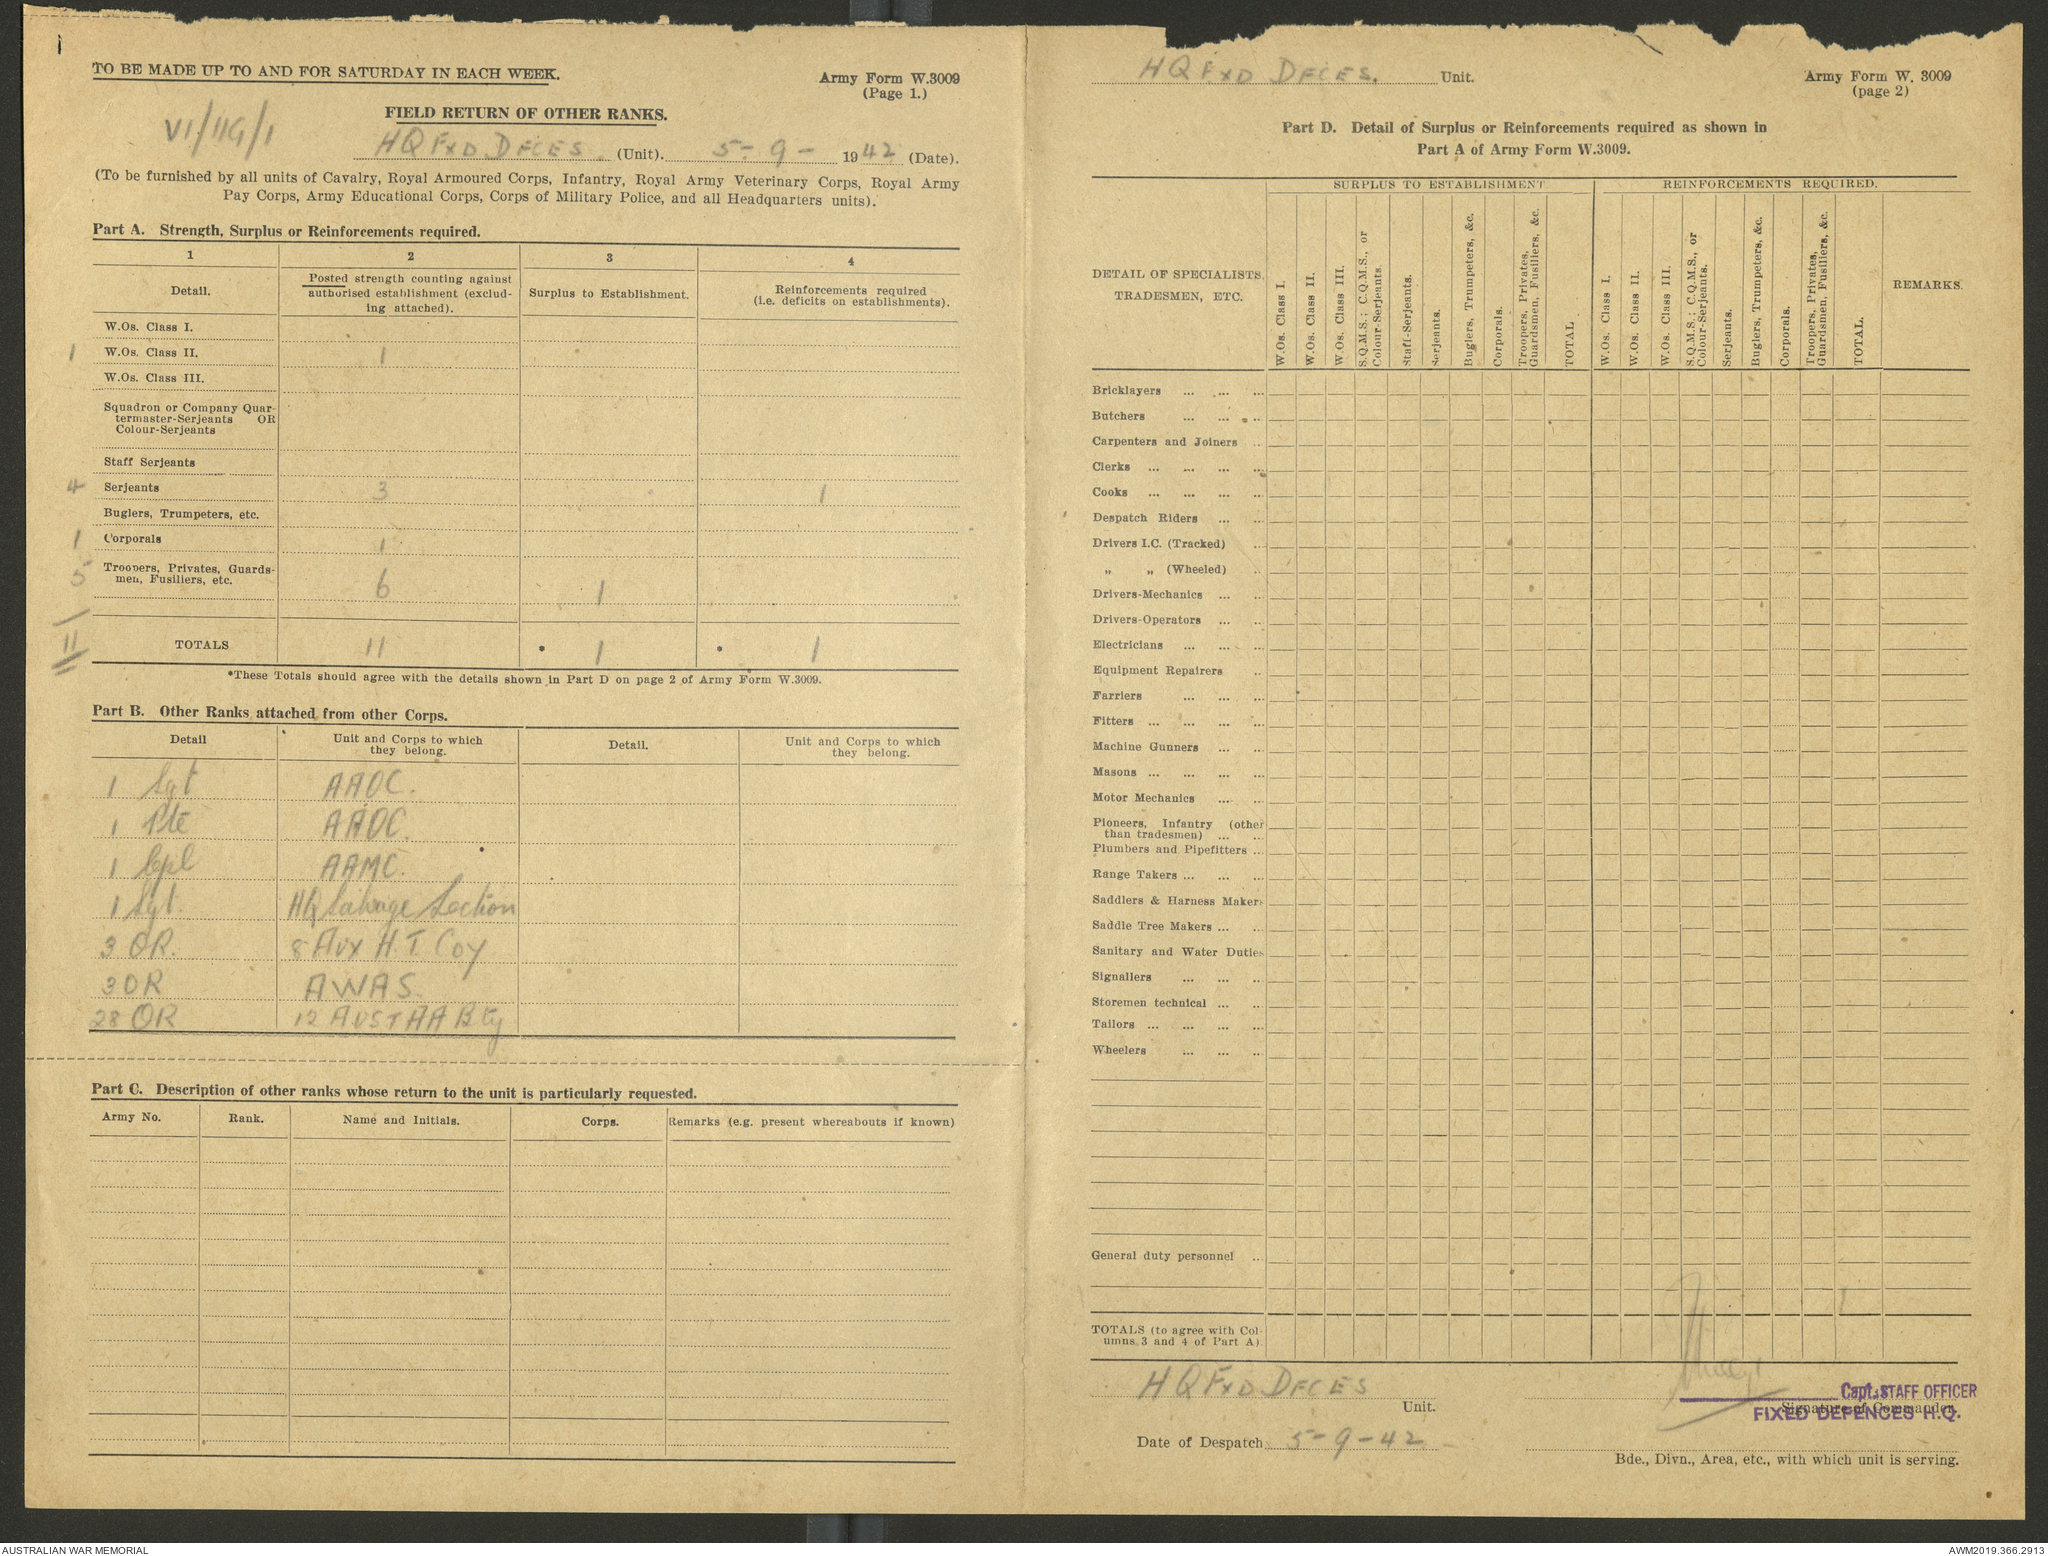 TO BE MADE UP TO AND FOR SATURDAY IN EACH WEEK.
Army Form W.3009
(Page 1.)
FIELD RETURN OF OTHER RANKS.
VI/11G/1
HQ FXD DFCES (Unit). 5-9-1942 (Date).
(To be furnished by all units of Cavalry, Royal Armoured Corps, Infantry, Royal Army Veterinary Corps, Royal Army
Pay Corps, Army Educational Corps, Corps of Military Police, and all Headquarters units).
Part A. Strength, Surplus or Reinforcements required.
1 2 3 4
Detail.
Posted strength counting against
authorised establishment (exclud-
ing attached).
Surplus to Establishment.
Reinforcements required
(i.e. deficits on establishments).
W.Os. Class I.
1 W.Os. Class II. 1
W.Os. Class III.
Squadron or Company Quar-
termaster-Serjeants OR
Colour-Serjeants
Staff Serjeants
4 Serjeants 3 1
Buglers, Trumpeters, etc.
1 Corporals 1
5 Troopers, Privates, Guards-
men, Fusiliers, etc. 6 1
11 TOTALS 11 * 1 * 1
*These Totals should agree with the details shown in Part D on page 2 of Army Form W.3009.
Part B. Other Ranks attached from other Corps.
Detail
Unit and Corps to which
they belong.
Detail.
Unit and Corps to which
they belong.
1 Sgt AAOC.
1 Pte AAOC.
1 Cpl AAMC.
1 Sgt. HQ Salvage Section
3 OR. 8 AUX H.T. COY
3 OR AWAS.
28 OR 12 AUST AA Bty
Part C. Description of other ranks whose return to the unit is particularly requested.
Army No. Rank. Name and Initials. Corps. Remarks (e.g. present whereabouts if known)
HQ FXD DFCES. Unit.
Army Form W. 3009
(page 2)
Part D. Detail of Surplus or Reinforcements required as shown in
Part A of Army Form W.3009.
SURPLUS TO ESTABLISHMENT REINFORCEMENTS REQUIRED.
DETAIL OF SPECIALISTS,
TRADESMEN, ETC.
W.Os. Class I.
W.Os. Class II.
W.Os. Class III.
S.Q.M.S.; C.Q.M.S., or
Colour-Serjeants.
Staff-Serjeants.
Serjeants.
Buglers, Trumpeters, &c.
Corporals.
Troopers, Privates,
Guardsmen, Fusiliers, &c.
TOTAL
W.Os. Class I.
W.Os. Class II.
W.Os. Class III.
S.Q.M.S.; C.Q.M.S., or
Colour-Serjeants.
Serjeants.
Buglers, Trumpeters, &c.
Corporals.
Troopers, Privates,
Guardsmen, Fusiliers, &c.
TOTAL.
REMARKS.
Bricklayers ... ... ...
Butchers ... ... ...
Carpenters and Joiners ..
Clerks ... ... ... ...
Cooks ... ... ... ...
Despatch Riders ... ...
Drivers I.C. (Tracked) ..
„ „ (Wheeled) ..
Drivers-Mechanics ... ...
Drivers-Operators ... ...
Electricians ... ... ...
Equipment Repairers ..
Farriers ... ... ...
Fitters ... ... ... ...
Machine Gunners ... ...
Masons ... ... ... ...
Motor Mechanics ... ...
Pioneers, Infantry (other
than tradesmen) ... ...
Plumbers and Pipefitters ...
Range Takers ... ... ...
Saddlers & Harness Makers
Saddle Tree Makers ... ..
Sanitary and Water Duties
Signallers ... ... ...
Storemen technical ... ..
Tailors ... ... ... ...
Wheelers ... ... ...
General duty personnel ...
1
TOTALS (to agree with Col-
umns 3 and 4 of Part A)
HQ FXD DFCES
Unit.
Capt. STAFF OFFICER
Signature of Commander.
FIXED DEFENCES H.Q.
Date of Despatch 5-9-42
Bde., Divn., Area, etc., with which unit is serving.
AUSTRALIAN WAR MEMORIAL
AWM2019.366.2913